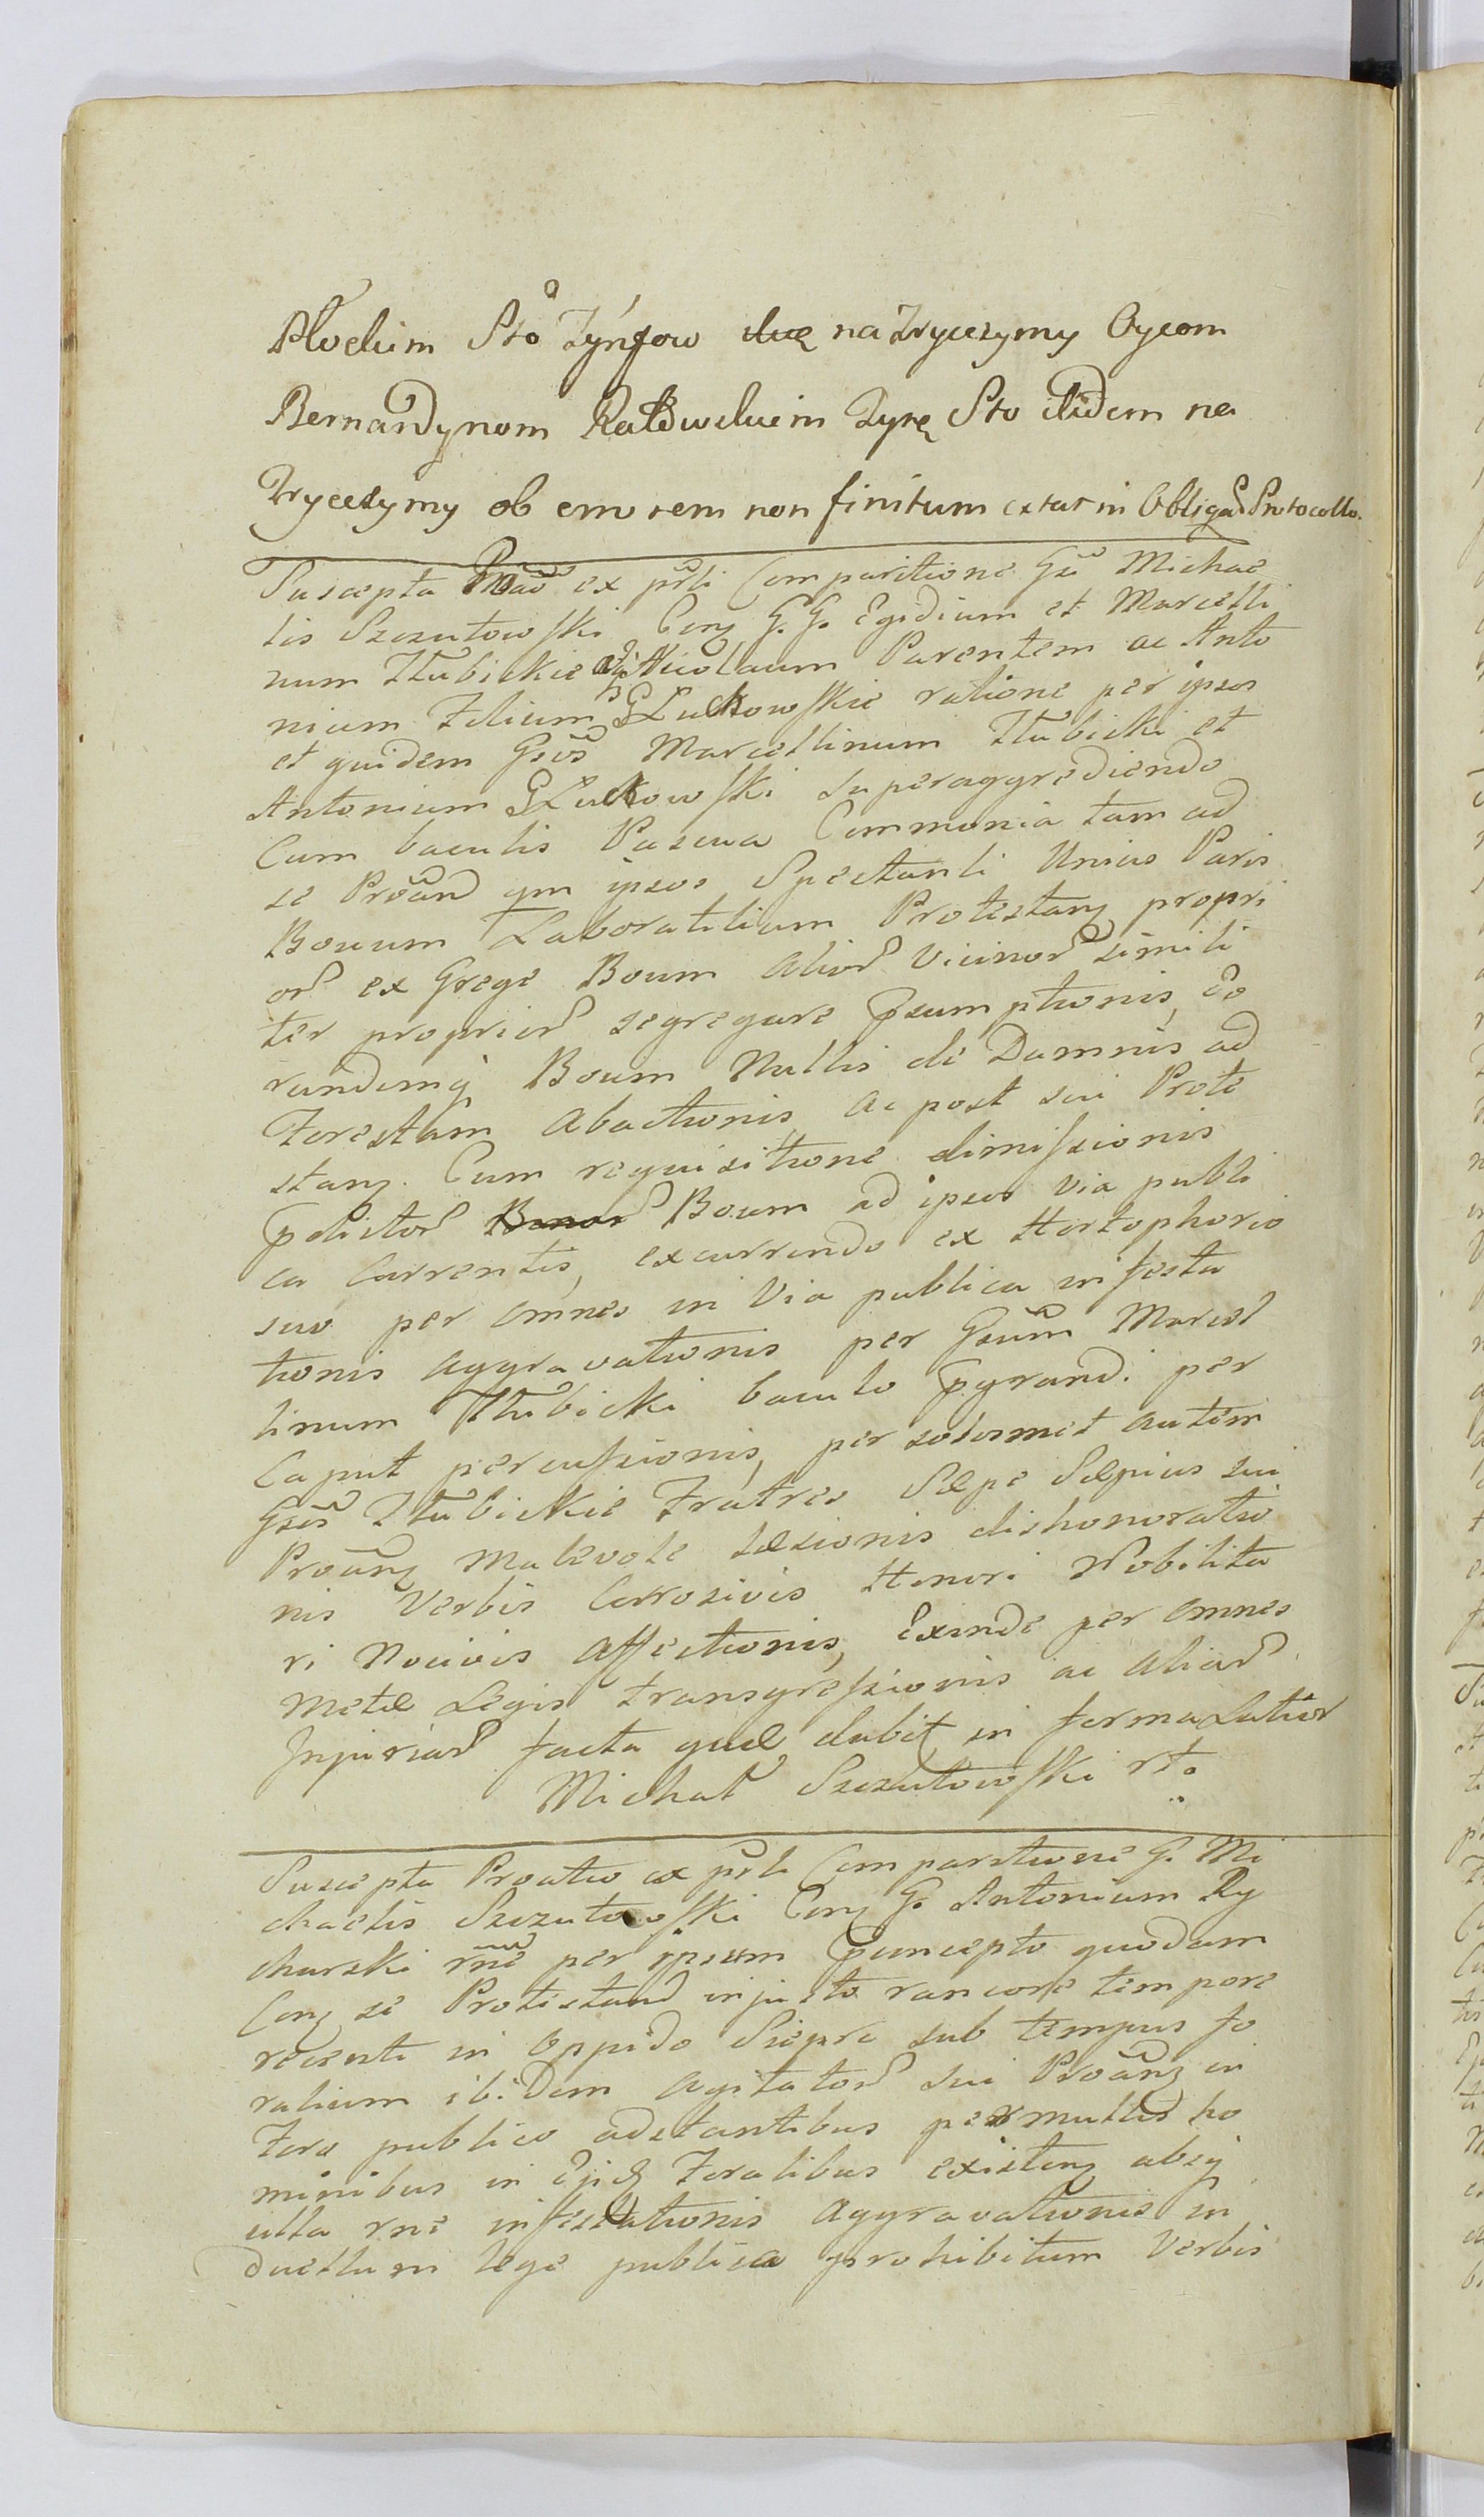 Sto Tynfow na Trycezymy Oycom
Bernardynom Sto itidem na
Trycezymy ob errorem non finitum extat in Obligad Protocollo.
Suscepta ex prli Comparitione Gsi Michae
lis Szczutowski Conz G. G. Egidium et Marcelli
num Hubickie Nicolaum Parentem ac Anto
nium Filium GLuckowskie ratione per ipsos
et quidem Gsos Marcellinum Hubicki et
Antonium GLuckowski superaggrediendo
Cum baculis Pascua Communia tam ad
se Proand qm ipsos Spectanti Unius Paris
Bouum Laboratilium Protestanz propri
or ex Grege Boum alior Vicinor simili
ter proprior segregare psumptionis, Eo
rundemq Boum Nullis de Damnis ad
Forestam abactionis, ac post sui Prote
stanz. Cum requisitione dimissionis
pdictor Boum ad ipsos via publi
ca Currentis, excurrendo ex Hortophorio
suo per omnes in Via publica infesta
tionis aggravationis per Gsum Marcel
linum Hubicki baculo pgrandi per
Caput percussionis, per solosmet autem
Gsos Hubickie Fratres Sæpe Sæpius sui
Proanz Malevole læsionis dishonoratio
nis Verbis Corrosivis Honori Nobilita
ri Nocivis affectionis, Exinde per omnes
Metæ Legis transgressionis ac aliar
Injuriar facta quæ dabit in forma Latior
Michał Szczutowski
Suscepta Proatio ex prli Comparitione G. Mi
chaelis Szczutowski Conz G. Antonium Ry
charski rne per ipsum pconcepto quodam
Conz se Protestand injusto rancore tempore
recenti in Oppido Sierpc sub tempus fo
ralium ibidem agitator sui Proanz in
Foro publico adstantibus permultis ho
minibus in Foralibus existenz absq
ulla rne infestationis aggravationis in
duellum lege publica prohibitum Verbis